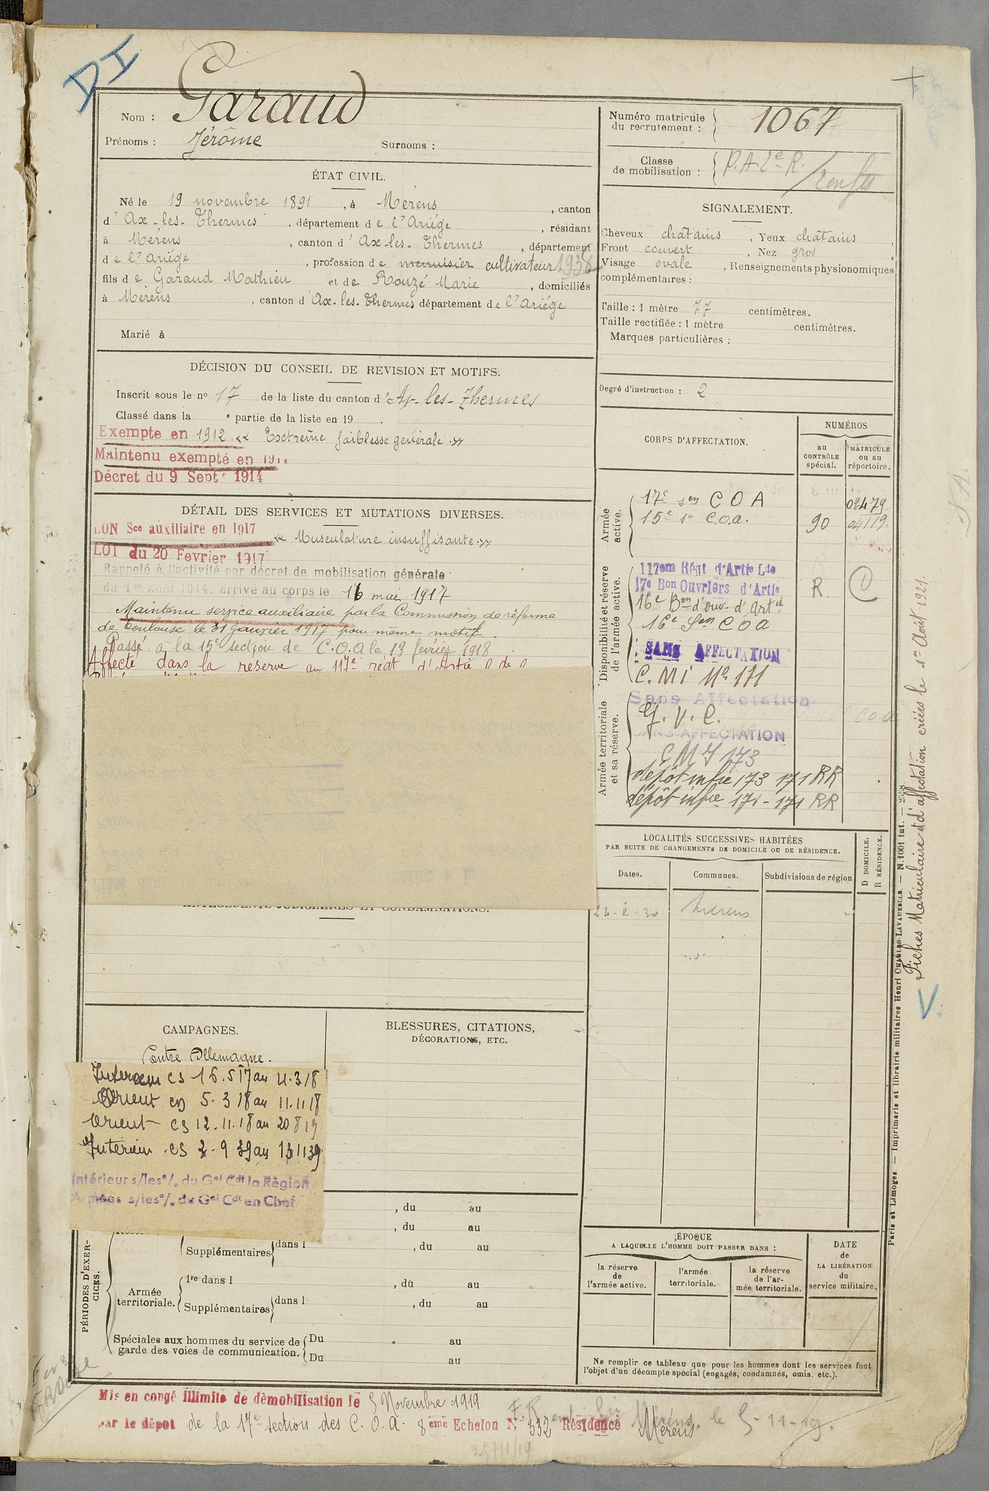 DI
Nom : Garaud
Prénoms : Jérôme Surnoms :
ÉTAT CIVIL.
Né le 19 novembre 1891, à Mérens, canton
d'Ax-les-Thermes, département de l'Ariége, résidant
à Mérens, canton d'Ax-les-Thermes, département
de l'Ariége, profession de menuisier cultivateur 1938
fils de Garaud Mathieu et de Rouzé Marie, domiciliés
à Mérens, canton d'Ax-les-Thermes département de l'Ariége
Marié à
DÉCISION DU CONSEIL DE REVISION ET MOTIFS.
Inscrit sous le no 17 de la liste du canton d'Ax-les-Thermes
Classé dans la e partie de la liste en 19
Exempté en 1912 « Extreme faiblesse générale »
Maintenu exempté en 191
Décret du 9 Septe 1914
DÉTAIL DES SERVICES ET MUTATIONS DIVERSES.
BON Sce auxiliaire en 1917 « Musculature insuffisante »
LOI du 20 Fevrier 1917
Rappelé à l'activité par décret de mobilisation générale
du 1er Août 1914, arrivé au corps le 16 mai 1917
Maintenu service auxiliaire par la Commission de réforme
de Toulouse le 31 janvier 1917 pour même motif.
Passé à la 15e section de C.O.A le 13 février 1918
Affecté dans la réserve au 117e regt d'Artie
ANTÉCÉDENTS JUDICIAIRES ET CONDAMNATIONS.
CAMPAGNES.
Contre Allemagne.
Intérieur CS 16.5.17 au 4.3.18
Orient CD 5.3.18 au 11.11.18
Orient CS 12.11.18 au 20 8 19
Intérieur CS 2.9 39 au 13 11 39
Intérieur s/les o/. du Gal Cdt la Région
Armées s/les o/. du Gal Cdt en Chef
BLESSURES, CITATIONS,
DÉCORATIONS, ETC.
PÉRIODES D'EXER-
CICES.
, du au
, du au
Supplémentaires dans l , du au
Armée
territoriale.
1re dans l , du au
Supplémentaires dans l , du au
Spéciales aux hommes du service de
garde des voies de communication.
Du au
Du au
Mis en congé illimité de démobilisation le 5 Novembre 1919
par le dépot de la 17e section des C.O.A. 8eme Echelon No 532 Résidence Mérens
Mérens le 5-11-19.
Numéro matricule
du recrutement : 1067
Classe
de mobilisation :
SIGNALEMENT.
Cheveux chatains, Yeux chatains,
Front couvert, Nez gros
Visage ovale, Renseignements physionomiques
complémentaires :
Taille : 1 mètre 77 centimètres.
Taille rectifiée : 1 mètre centimètres.
Marques particulières :
Degré d'instruction : 2
CORPS D'AFFECTATION.
NUMÉROS
au
CONTRÔLE
spécial.
MATRICULE
ou au
répertoire.
Armée
active.
17e son C O A 02479
15e C.O.A. 90
Disponibilité et réserve
de l'armée active.
117em Régt d'Artie Lde
17e Bon Ouvriers d'Artie R.
16e Bon d'ouv. d'Artie
16e Son C O A
SANS AFFECTATION
C. M I No 171
Armée territoriale
et sa réserve.
Sans Affectation
G. V. C.
SANS AFFECTATION
C M I 173
dépôt infie 173 171 RR
dépôt infie 171-171 RR
LOCALITÉS SUCCESSIVES HABITÉES
PAR SUITE DE CHANGEMENTS DE DOMICILE OU DE RÉSIDENCE.
Dates. Communes. Subdivisions de région
D DOMICILE.
R RÉSIDENCE.
Mérens
ÉPOQUE
A LAQUELLE L'HOMME DOIT PASSER DANS :
la réserve
de
l'armée active.
l'armée
territoriale.
la réserve
de l'ar-
mée territoriale.
DATE
de
LA LIBÉRATION
du
service militaire.
Ne remplir ce tableau que pour les hommes dont les services font
l'objet d'un décompte spécial (engagés, condamnés, omis, etc.).
Paris et Limoges. — Imprimerie et librairie militaires Henri CHARLES-LAVAUZELLE. — N. 1001 Int.
Fiches Matriculaire et d'affectation créées le 1er Août 1921.